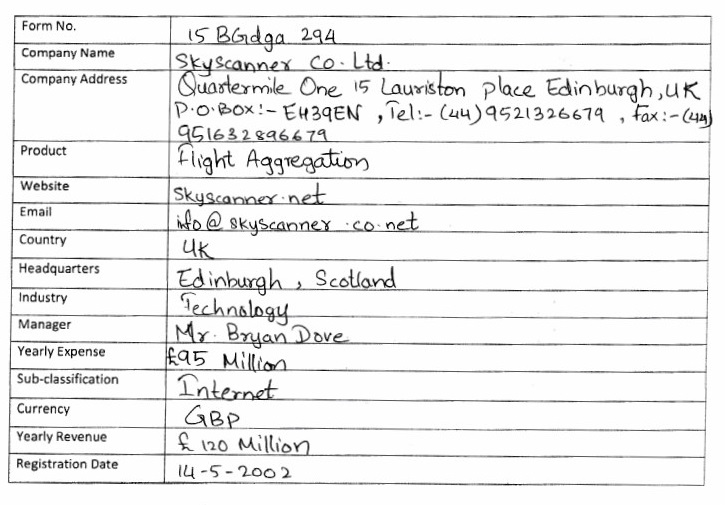 Form No. 15 BGdga 294
Company Name Skyscanner Co. Ltd.
Company Address Quartermile One 15 Lauriston place Edinburgh, UK
P.O.BOX:- EH39EN , Tel:- (44)9521326679 , Fax:-(44)
951632896679
Product Flight Aggregation
Website Skyscanner.net
Email info@skyscanner.co.net
Country UK
Headquarters Edinburgh , Scotland
Industry Technology
Manager Mr. Bryan Dove
Yearly Expense £95 Million
Sub-classification Internet
Currency GBP
Yearly Revenue £ 120 Million
Registration Date 14-5-2002